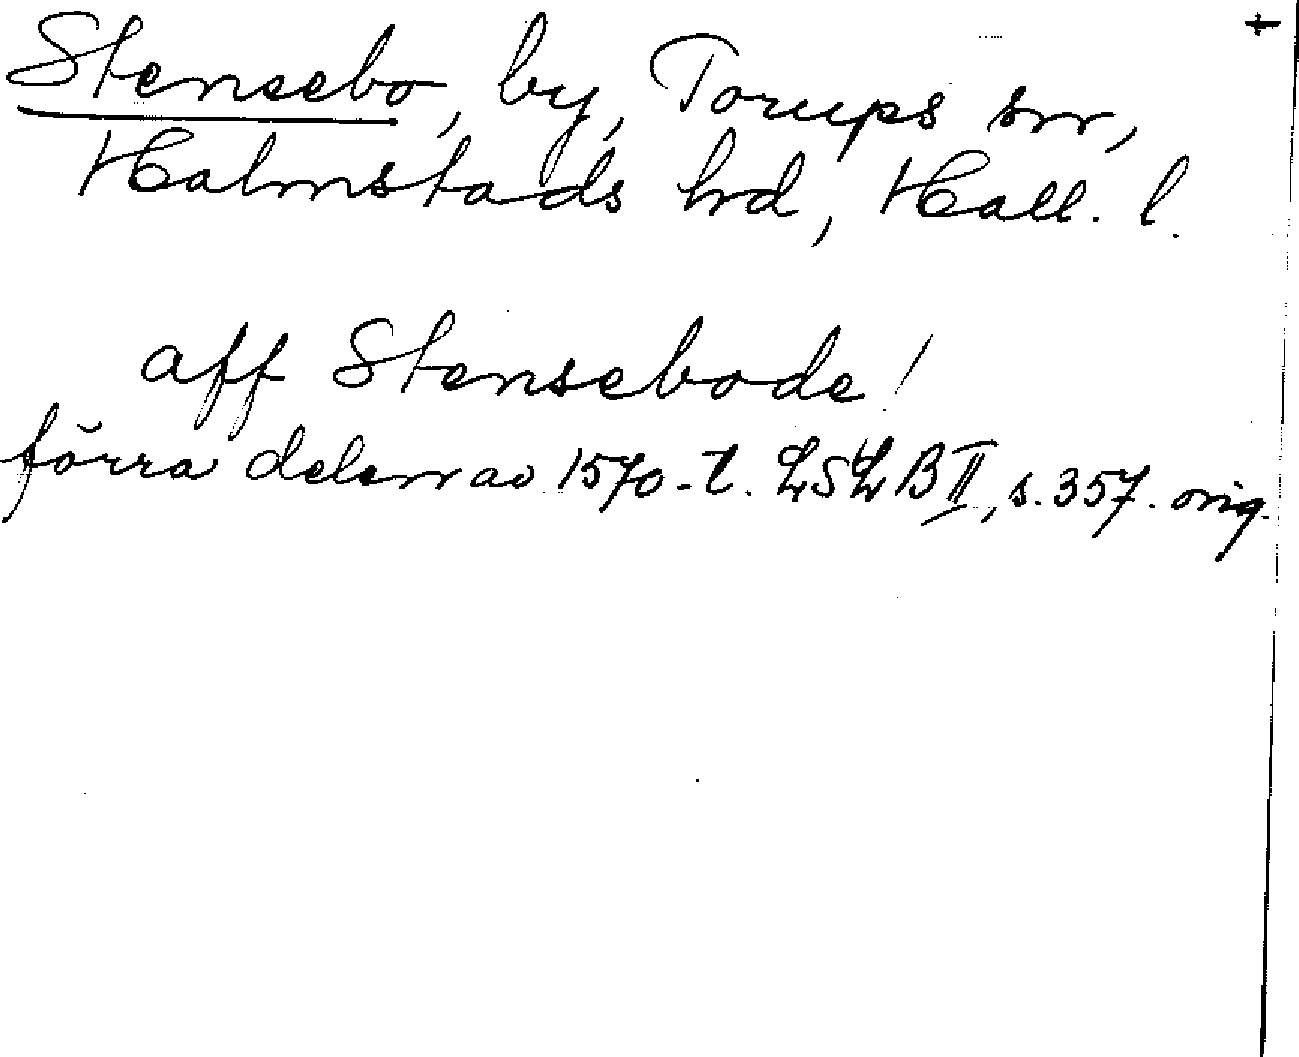 +
Stensebo, by, Torups sn,
Halmstads hd, Hall. l.
aff Stensebode!
förra delen av 1570-t. LSLB II, s. 357. orig.